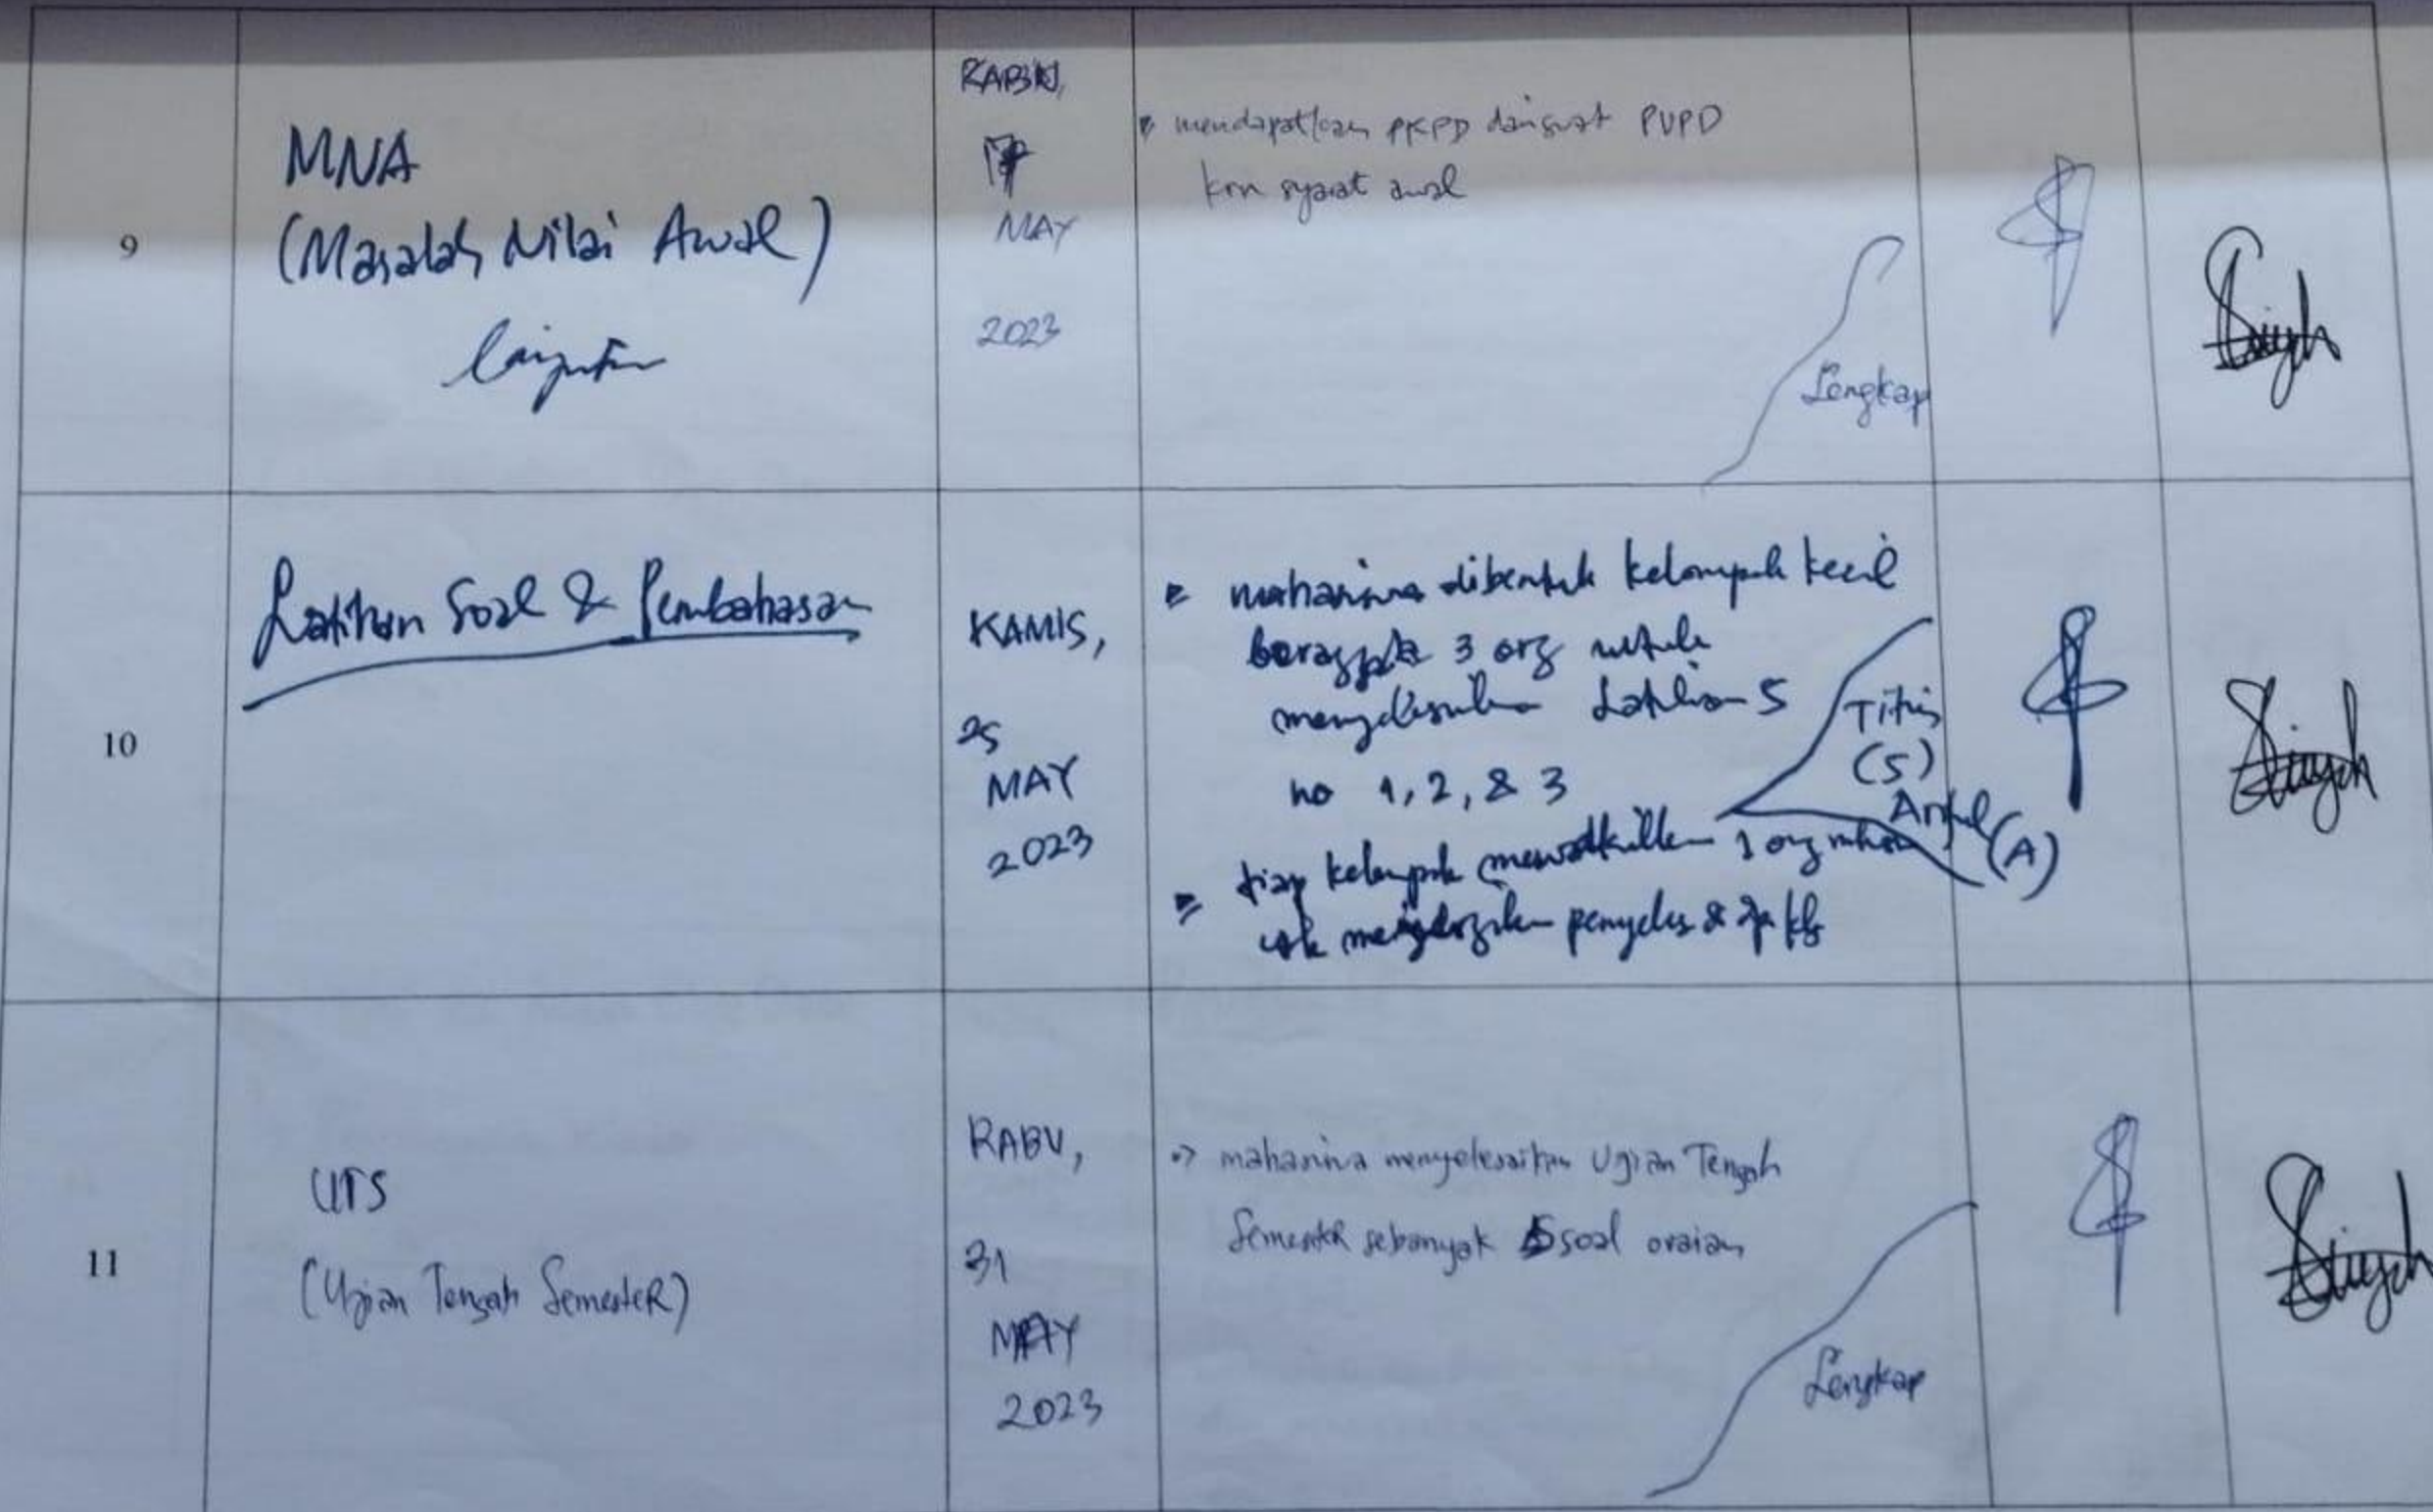 9
MNA
(Masalah Nilai Awal)
lanjutan
RABU,
17
MAY
2023
mendapatkan PKPD dari suatu PUPD
krn syarat awal
Lengkap
10
Latihan Soal & Pembahasan
KAMIS,
25
MAY
2023
mahasiswa dibentuk kelompok kecil
3 org untuk
Latihan 5
no 1, 2, & 3
tiap kelompok mewakilkan 1 org
utk penyeles &
Titis
(S)
(A)
11
UTS
(Ujian Tengah Semester)
RABU,
31
MAY
2023
mahasiswa menyelesaikan Ujian Tengah
Semester sebanyak 5 soal uraian
Lengkap